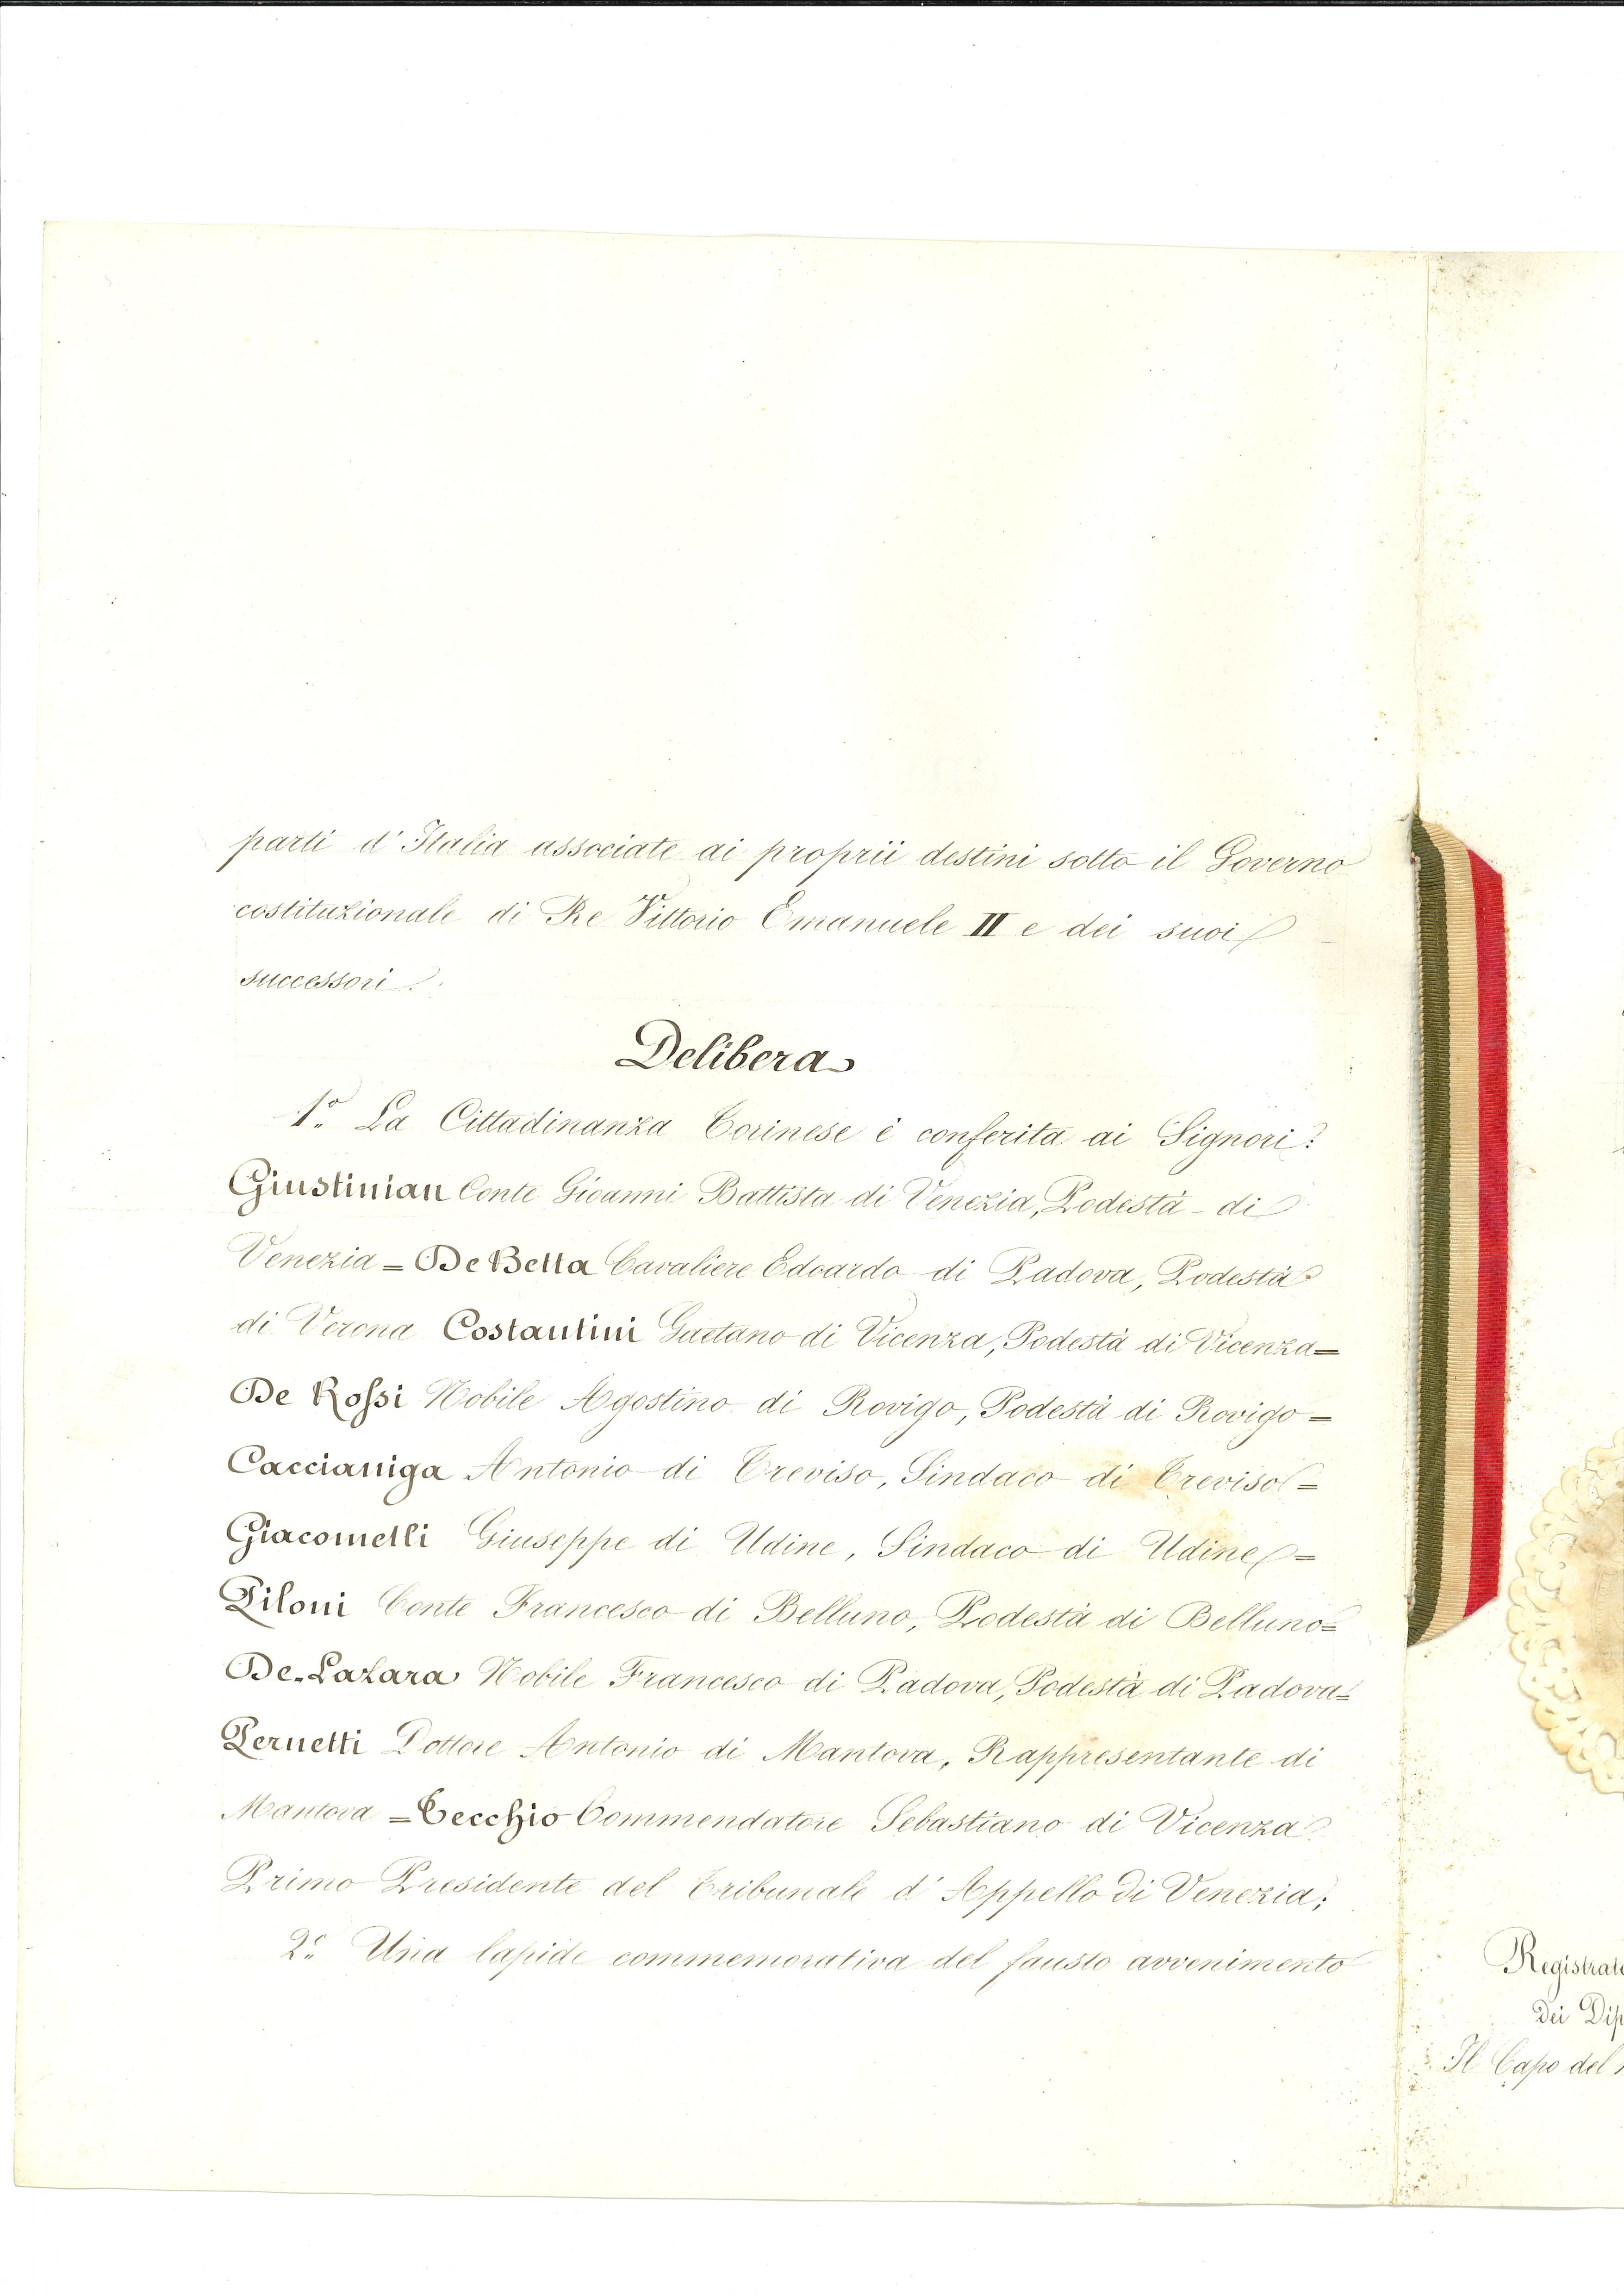 parti d'Italia associate ai proprii destini sotto il Governo
costituzionale di Re Vittorio Emanuele II e dei suoi
successori.
Delibera
1º La Cittadinanza Torinese è conferita ai Signori:
Giustinian Conte Giovanni Battista di Venezia, Podestà di
Venezia = De Betta Cavaliere Edoardo di Padova, Podestà
di Verona Costantini Gaetano di Vicenza, Podestà di Vicenza =
De Rossi Nobile Agostino di Rovigo, Podestà di Rovigo =
Caccianiga Antonio di Treviso, Sindaco di Treviso =
Giacomelli Giuseppe di Udine, Sindaco di Udine =
Piloni Conte Francesco di Belluno, Podestà di Belluno =
De-Lazara Nobile Francesco di Padova, Podestà di Padova =
Pernetti Dottore Antonio di Mantova, Rappresentante di
Mantova = Tecchio Commendatore Sebastiano di Vicenza
Primo Presidente del Tribunale d'Appello di Venezia;
2º Una lapide commemorativa del fausto avvenimento
Registrat
dei Dip
Il Capo del